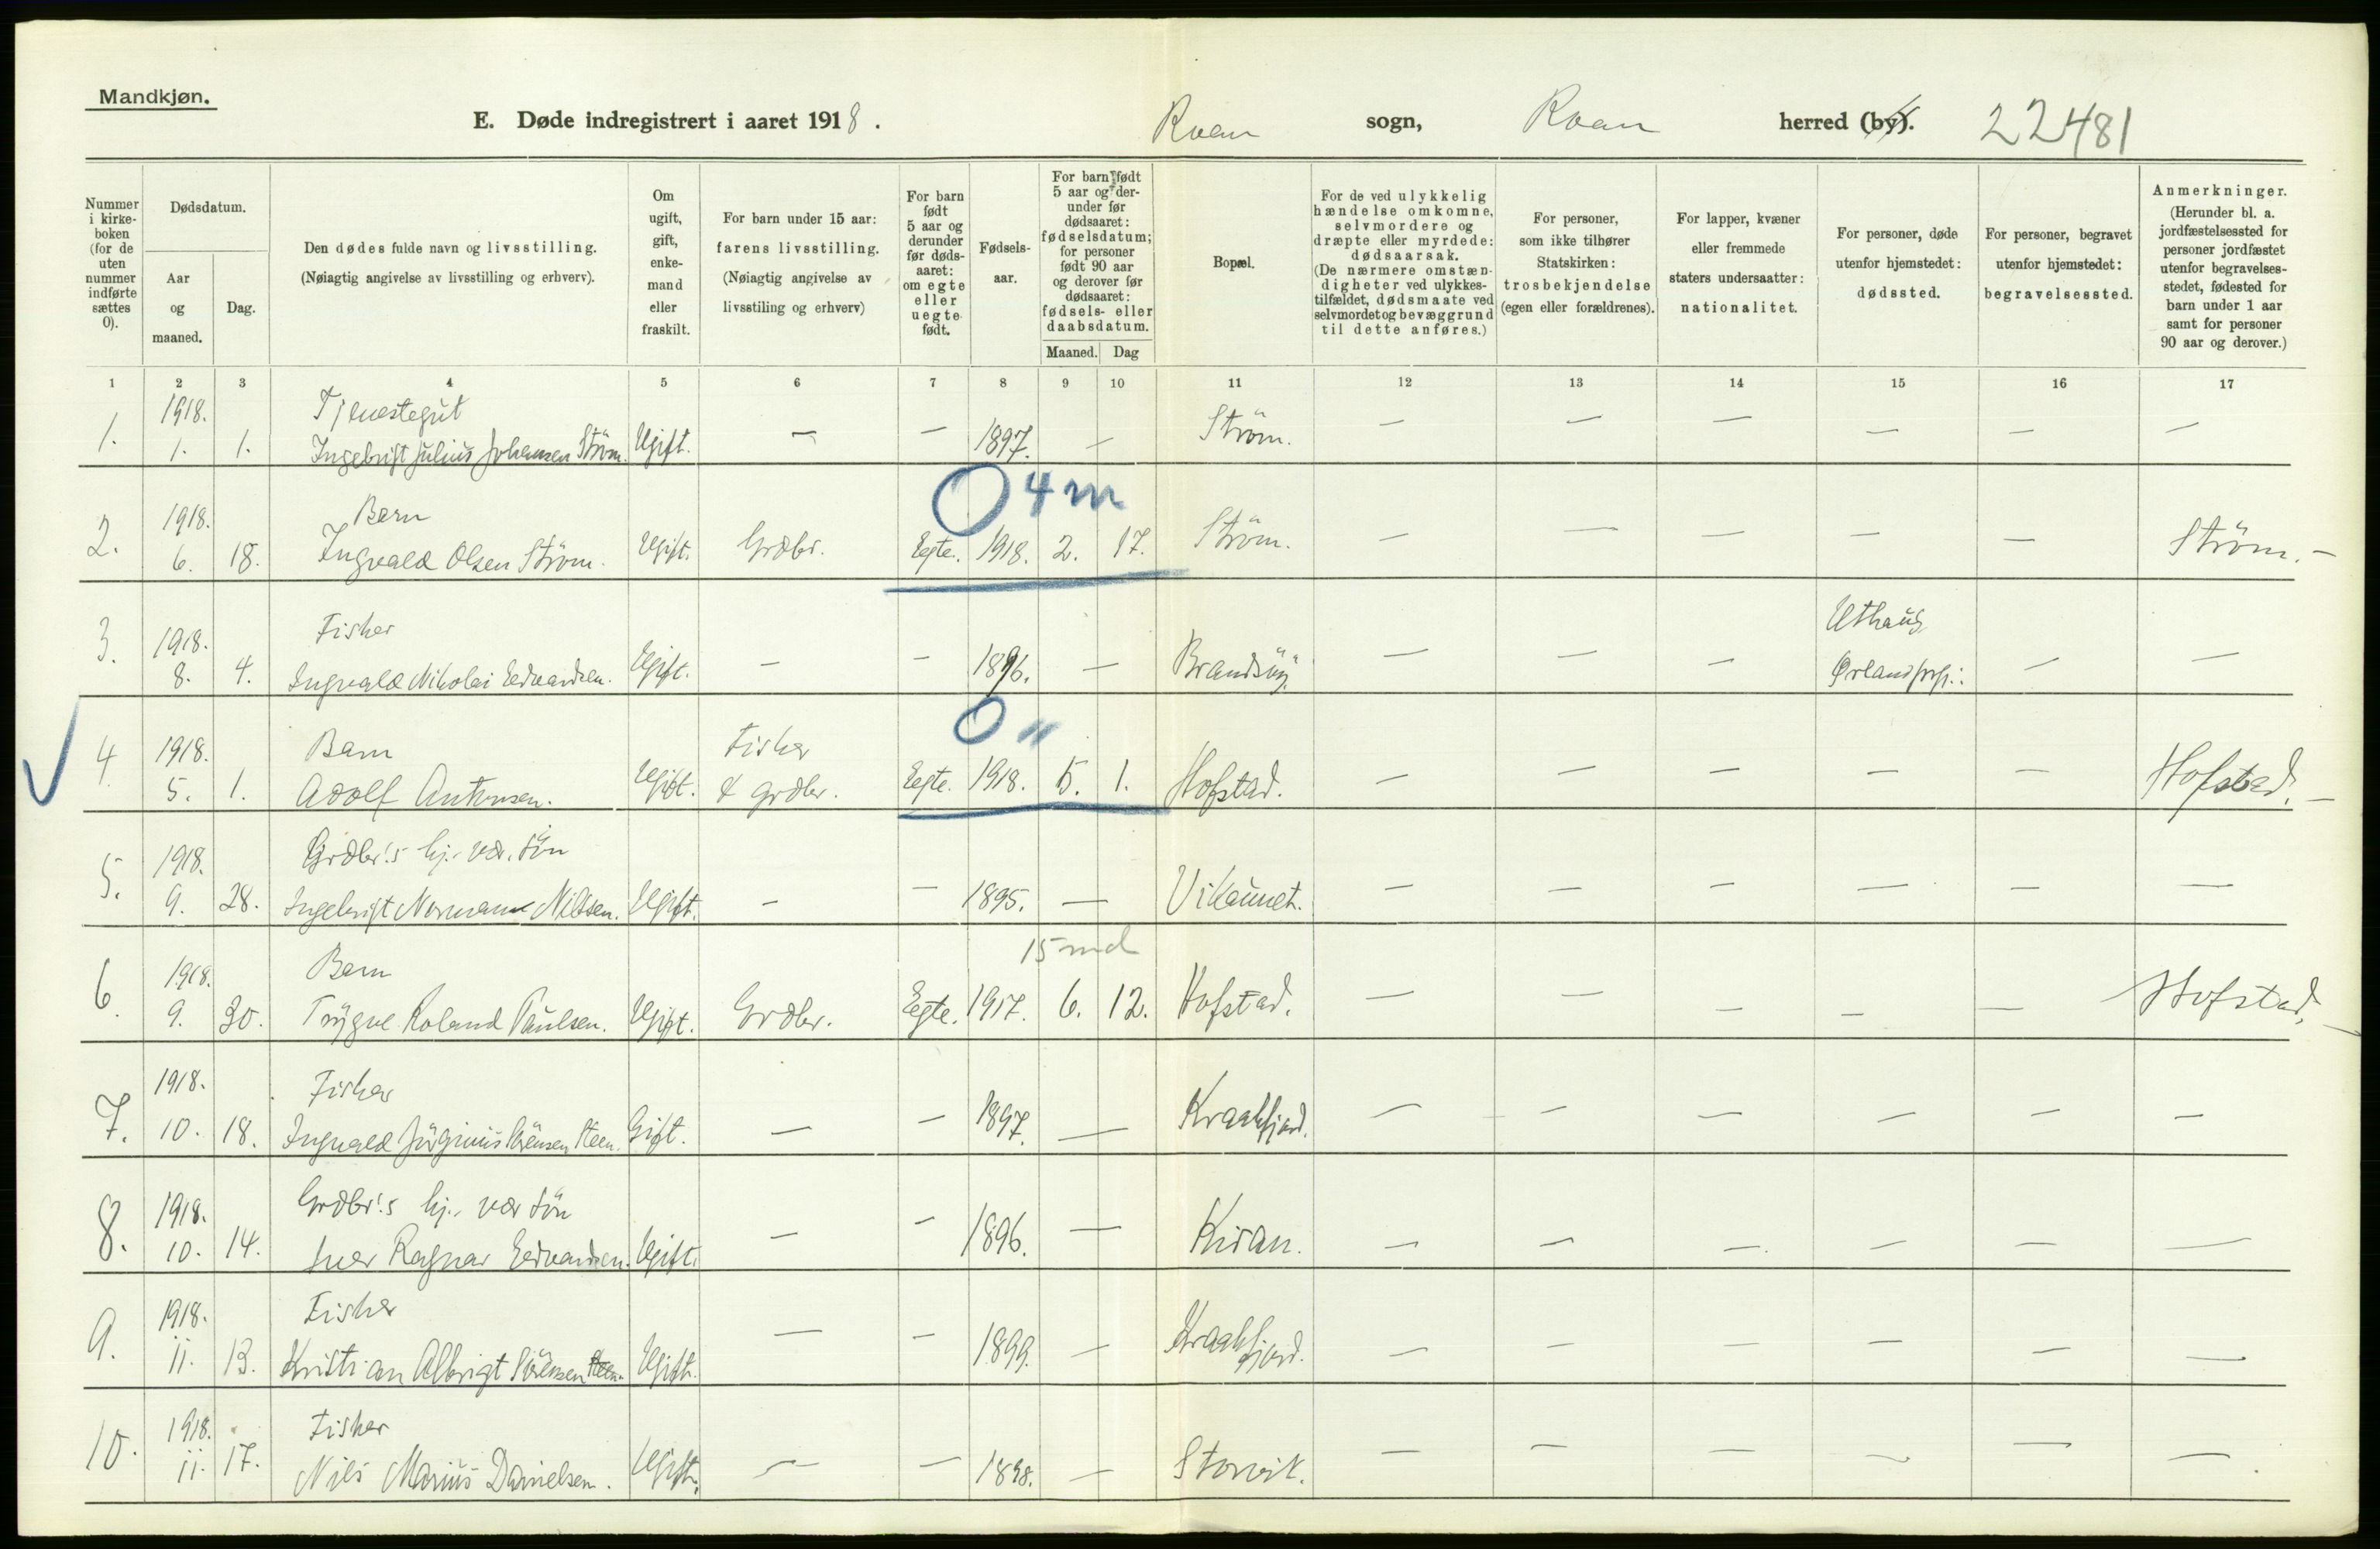 Mandkjøn.
E. Døde indregistrert i aaret 1918. Roan sogn, Roan herred (by). 22481
Nummer i kirkeboken (for de uten nummer indførte sættes 0).
Dødsdatum.
Aar og maaned.
Dag.
Den dødes fulde navn og livsstilling.
(Nøiagtig angivelse av livsstilling og erhverv).
Om ugift, gift, enkemand eller fraskilt.
For barn under 15 aar: farens livsstilling.
(Nøiagtig angivelse av livsstiling og erhverv)
For barn født 5 aar og derunder før dødsaaret: om egte eller uegte født.
Fødselsaar.
For barn født 5 aar og derunder før dødsaaret: fødselsdatum; for personer født 90 aar og derover før dødsaaret: fødsels- eller daabsdatum.
Maaned. Dag
Bopæl.
For de ved ulykkelig hændelse omkomne, selvmordere og dræpte eller myrdede: dødsaarsak.
(De nærmere omstændigheter ved ulykkestilfældet, dødsmaate ved selvmordet og bevæggrund til dette anføres.)
For personer, som ikke tilhører Statskirken: trosbekjendelse (egen eller forældrenes).
For lapper, kvæner eller fremmede staters undersaatter: nationalitet.
For personer, døde utenfor hjemstedet: dødssted.
For personer, begravet utenfor hjemstedet: begravelsessted.
Anmerkninger.
(Herunder bl. a. jordfæstelsessted for personer jordfæstet utenfor begravelsesstedet, fødested for barn under 1 aar samt for personer 90 aar og derover.)
1 2 3 4 5 6 7 8 9 10 11 12 13 14 15 16 17
1918. Tjenestegut
1. 1. 1. Ingebrigt Julius Johansen Ström. Ugift. — — 1897. — Ström. — — — — — —
0 4 m
1918. Barn
2. 6. 18. Ingvald Olsen Ström. Ugift. Grdbr. Egte. 1918. 2. 17. Ström. — — — — — Ström. —
1918. Fisker Uthaug
3. 8. 4. Ingvald Nikolai Edvardsen. Ugift. — — 1896. — Brandsöy. — — — Ørland — —
0 "
1918. Barn Fisker
4 5. 1. Adolf Antonsen. Ugift. & grdbr. Egte. 1918. 5. 1. Hofstad. — — — — — Hofstad. —
1918. Grdbr's hj. vær. sön
5. 9. 28. Ingebrigt Normann Nilssen. Ugift. — — 1895. — Vikaunet. — — — — — —
15 md
1918. Barn
6 9. 30. Trygve Roland Paulsen. Ugift. Grdbr. Egte. 1917. 6. 12. Hofstad. — — — — — Hofstad. —
1918. Fisker
7. 10. 18. Ingvald Jörginus Sörensen Steen. Gift. — — 1897. — Kraakfjord. — — — — — —
1918. Grdbr's hj. vær sön
8. 10. 14. Iver Ragnar Edvardsen. Ugift. — — 1896. — Kiran. — — — — — —
1918. Fisker
9. 11. 13. Kristian Albrigt Sörensen Steen. Ugift. — — 1899. — Kraakfjord. — — — — — —
1918. Fisker
10. 11. 17. Nils Marius Danielsen. Ugift. — — 1898. — Storvik. — — — — — —